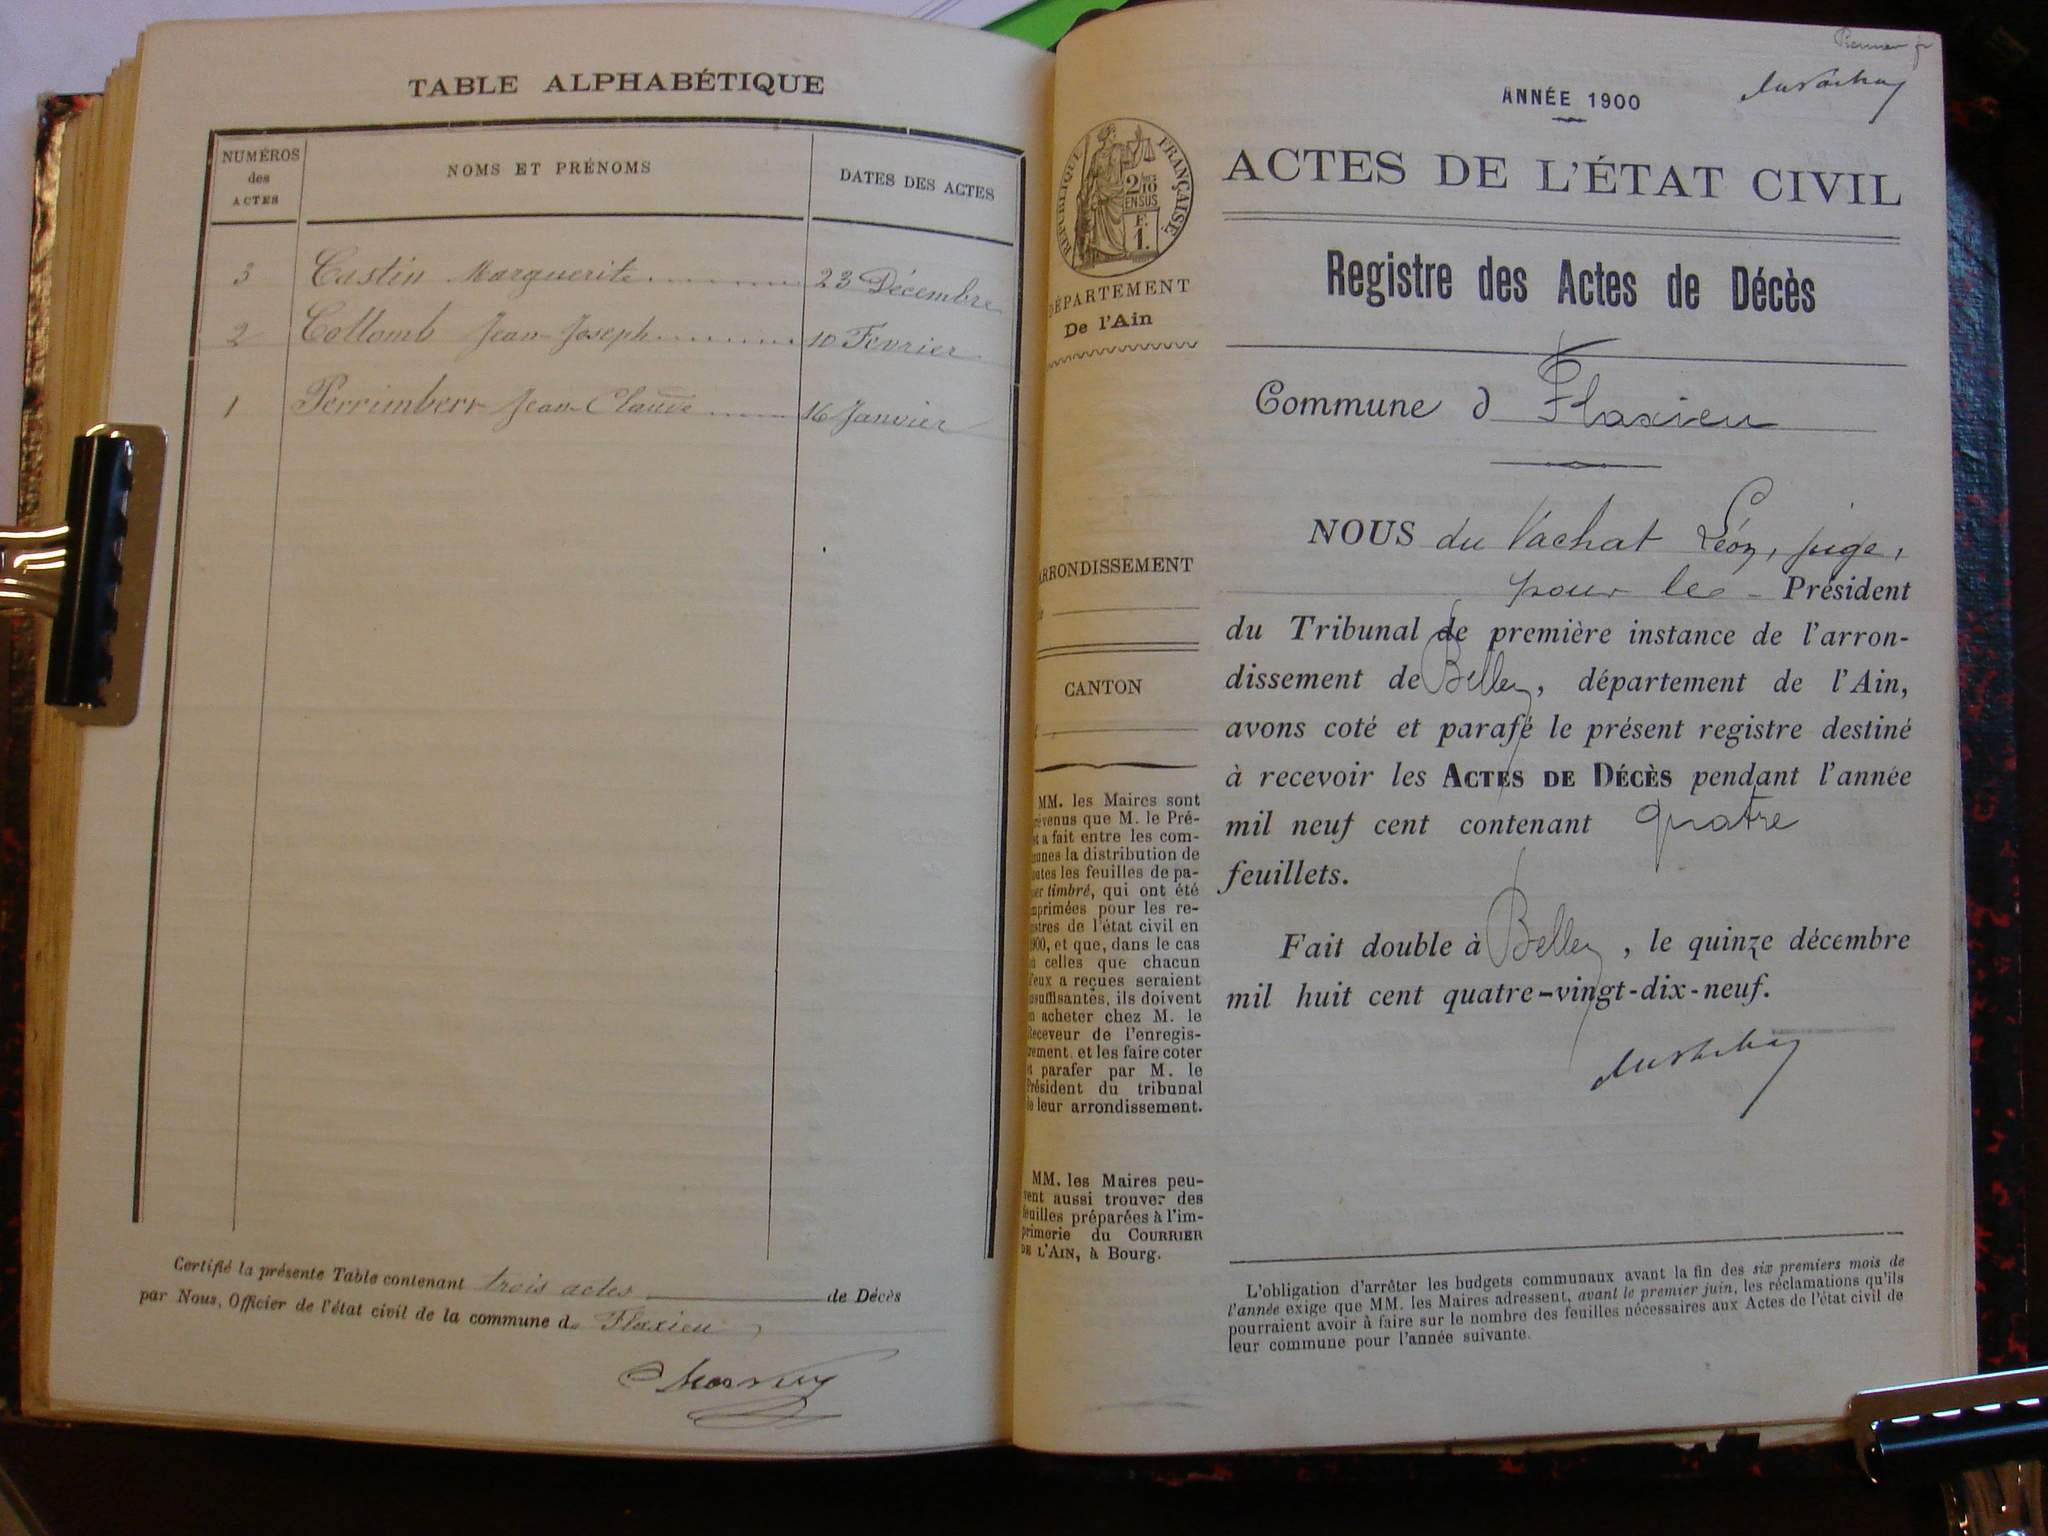 TABLE ALPHABÉTIQUE
NUMÉROS
des
ACTES
NOMS ET PRÉNOMS
DATES DES ACTES
3 Castin Marguerite 23 Décembre
2 Collomb Jean-Joseph 10 Fevrier
1 Perrimbert Jean-Claude 16 Janvier
Certifié la présente Table contenant trois actes de Décès
par Nous, Officier de l'état civil de la commune de Flaxieu
ANNÉE 1900
duvachat
RÉPUBLIQUE FRANÇAISE
2
10
EN SUS
F.
1.
DÉPARTEMENT
De l'Ain
ARRONDISSEMENT
CANTON
MM. les Maires sont
prévenus que M. le Pré-
fet a fait entre les com-
munes la distribution de
toutes les feuilles de pa-
pier timbré, qui ont été
imprimées pour les re-
gistres de l'état civil en
1900, et que, dans le cas
où celles que chacun
d'eux a reçues seraient
insuffisantes, ils doivent
en acheter chez M. le
Receveur de l'enregis-
trement, et les faire coter
et parafer par M. le
Président du tribunal
de leur arrondissement.
MM. les Maires peu-
vent aussi trouver des
feuilles préparées à l'im-
primerie du COURRIER
DE L'AIN, à Bourg.
ACTES DE L'ÉTAT CIVIL
Registre des Actes de Décès
Commune d Flaxieu
NOUS du Vachat Léon, juge,
pour le Président
du Tribunal de première instance de l'arron-
dissement de Belley, département de l'Ain,
avons coté et parafé le présent registre destiné
à recevoir les ACTES DE DÉCÈS pendant l'année
mil neuf cent contenant quatre
feuillets.
Fait double à Belley, le quinze décembre
mil huit cent quatre-vingt-dix-neuf.
duvachat
L'obligation d'arrêter les budgets communaux avant la fin des six premiers mois de
l'année exige que MM. les Maires adressent, avant le premier juin, les réclamations qu'ils
pourraient avoir à faire sur le nombre des feuilles nécessaires aux Actes de l'état civil de
leur commune pour l'année suivante.